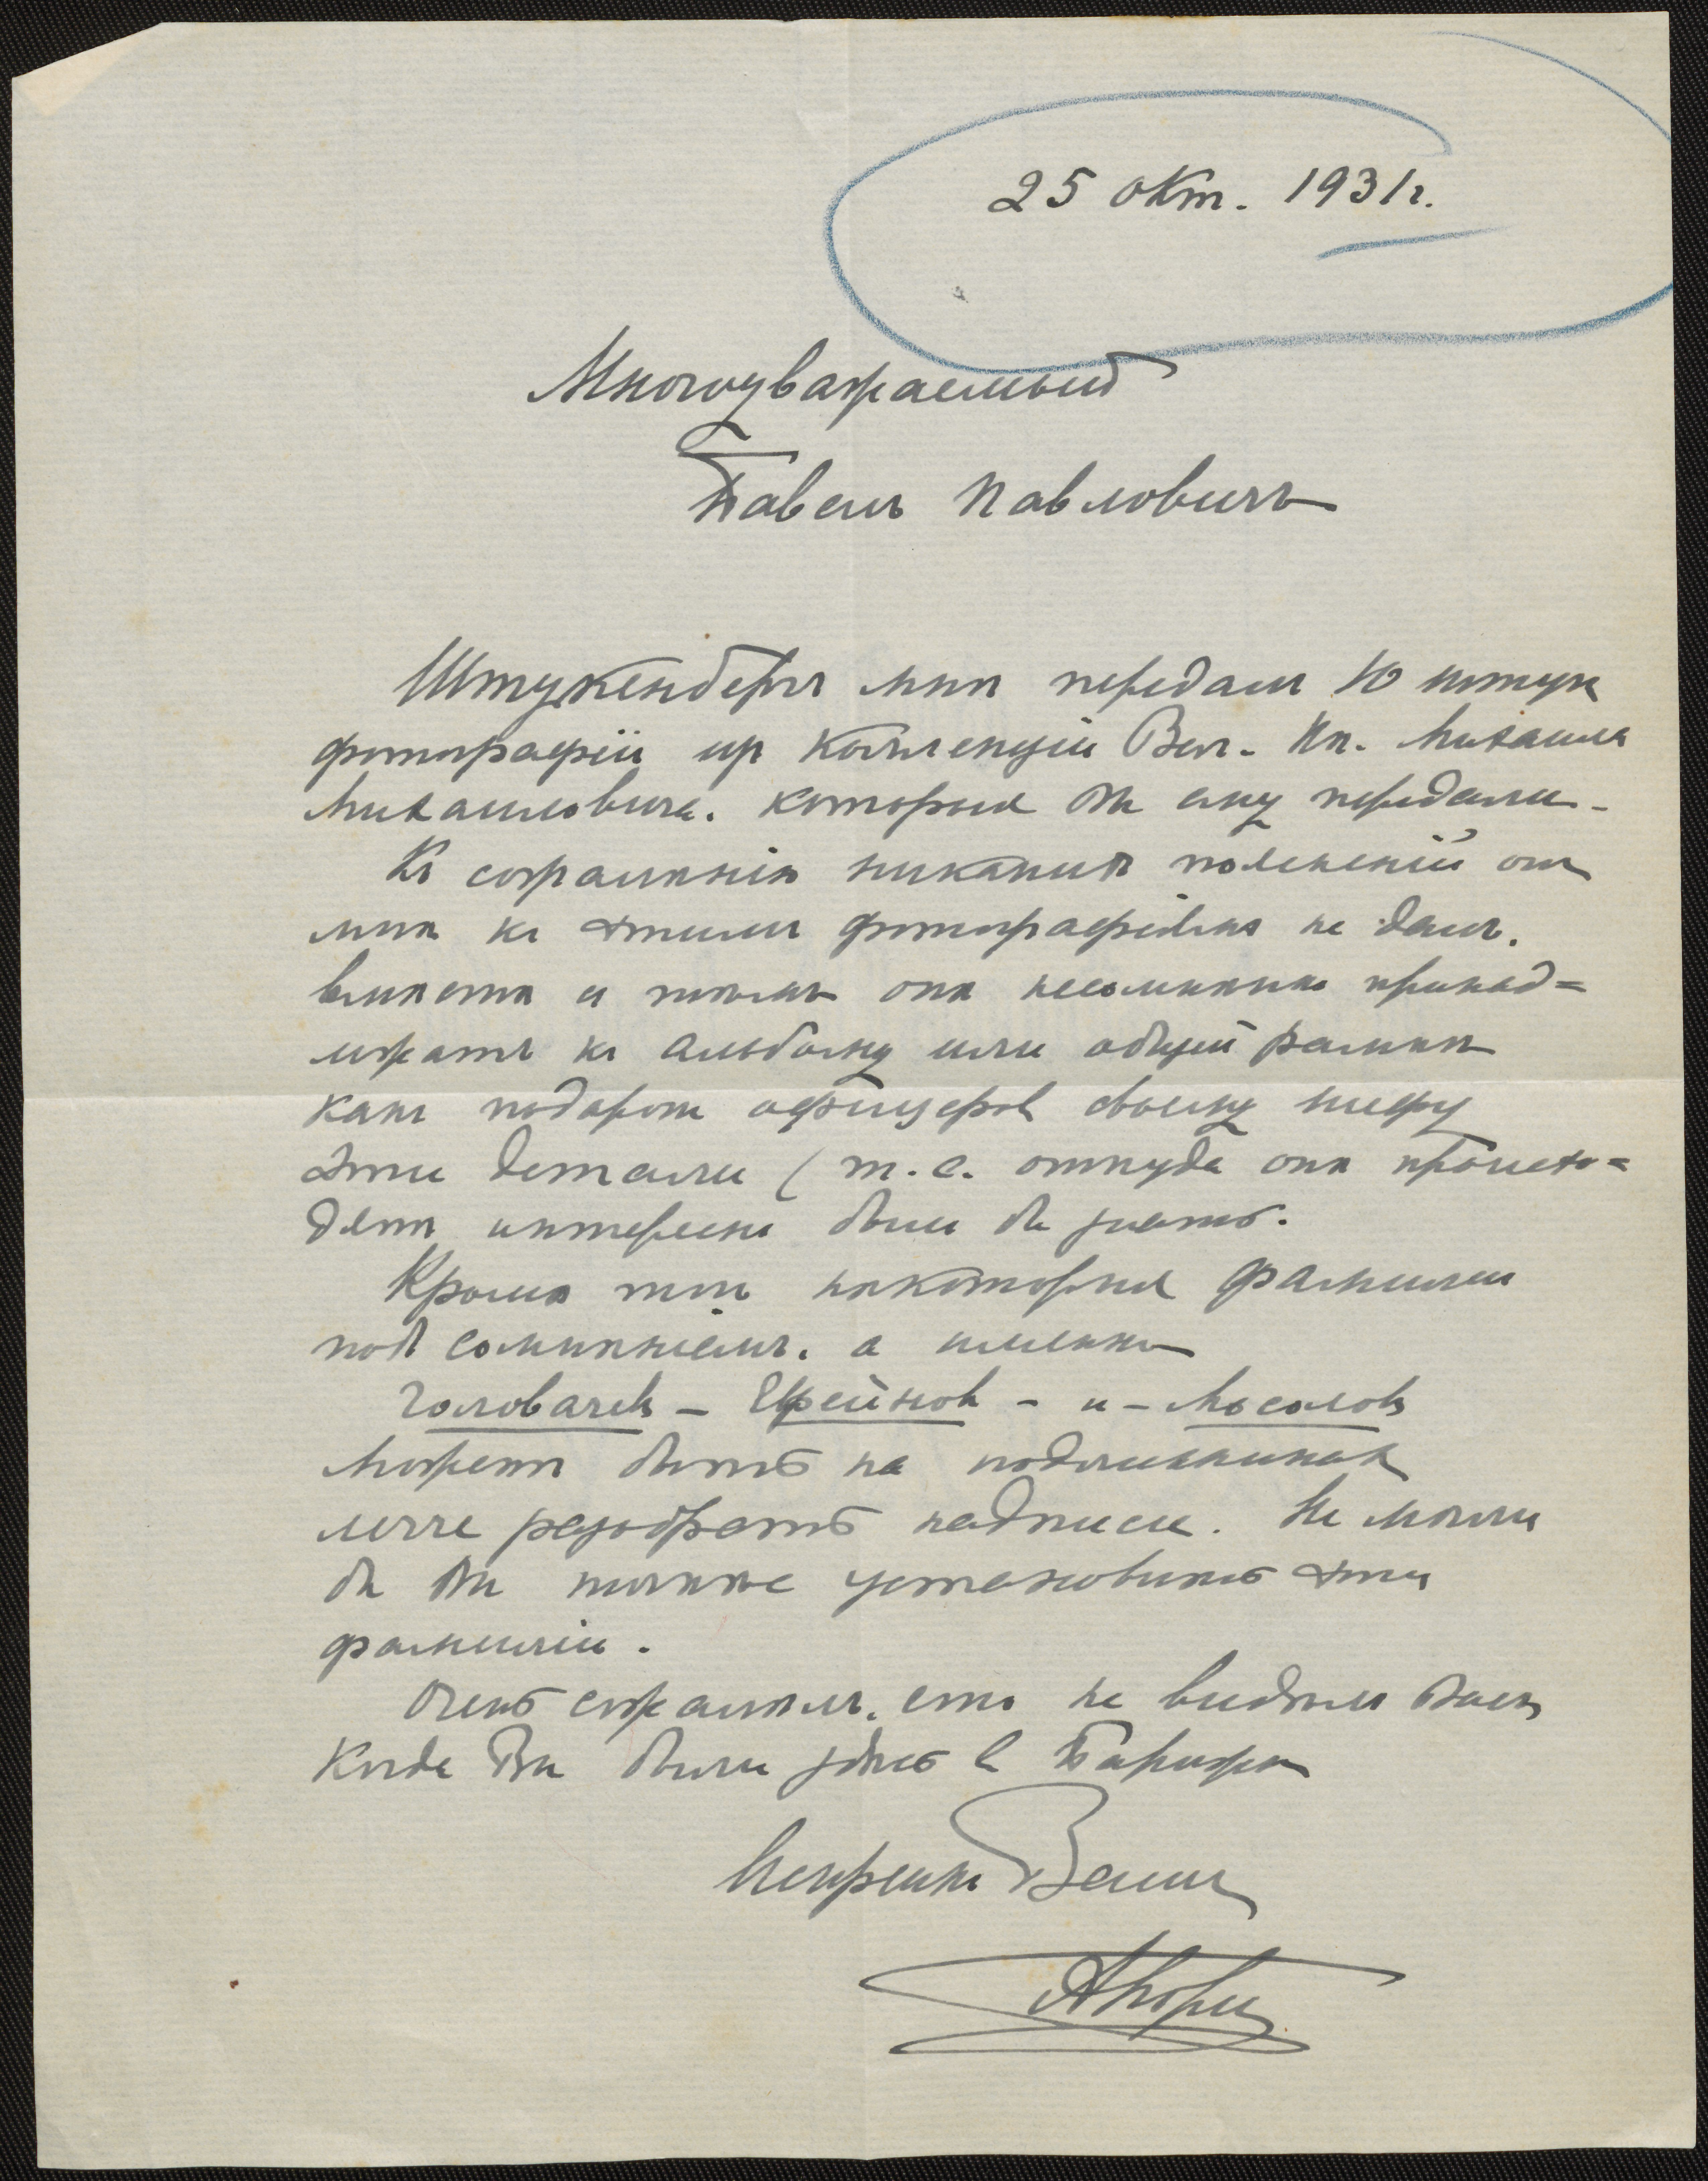 25 окт. 1931г.
Многоуважаемый
Павелъ Павловичъ
Штукенбергъ мнѣ передалъ 10 штукъ
фотографій изъ коллекціи Вел. Кн. Михаила
Михаиловича. которыя Вы ему передали.
Къ сожалѣнію никакихъ поясненій онъ
мнѣ къ этимъ фотографіямъ не далъ,
они несомнѣнно принад=
лежатъ къ альбому или общей рамкѣ
какъ подарокъ офицеровъ своему шефу
Эти детали (т.е. откуда онѣ происхо=
дятъ интересно было бы знать.
Кромѣ того нѣкоторыя фамиліи
подъ сомнѣніемъ. а именно
Головачевъ – Ерейновъ – и – Мосоловъ
Можетъ быть на подлинникахъ
легче разобрать надписи. Не могли
бы Вы точнѣе установить эти
фамиліи.
Очень сожалѣлъ, что не видѣлъ Васъ
когда Вы были здѣсь въ Парижѣ
Искренно Вашъ